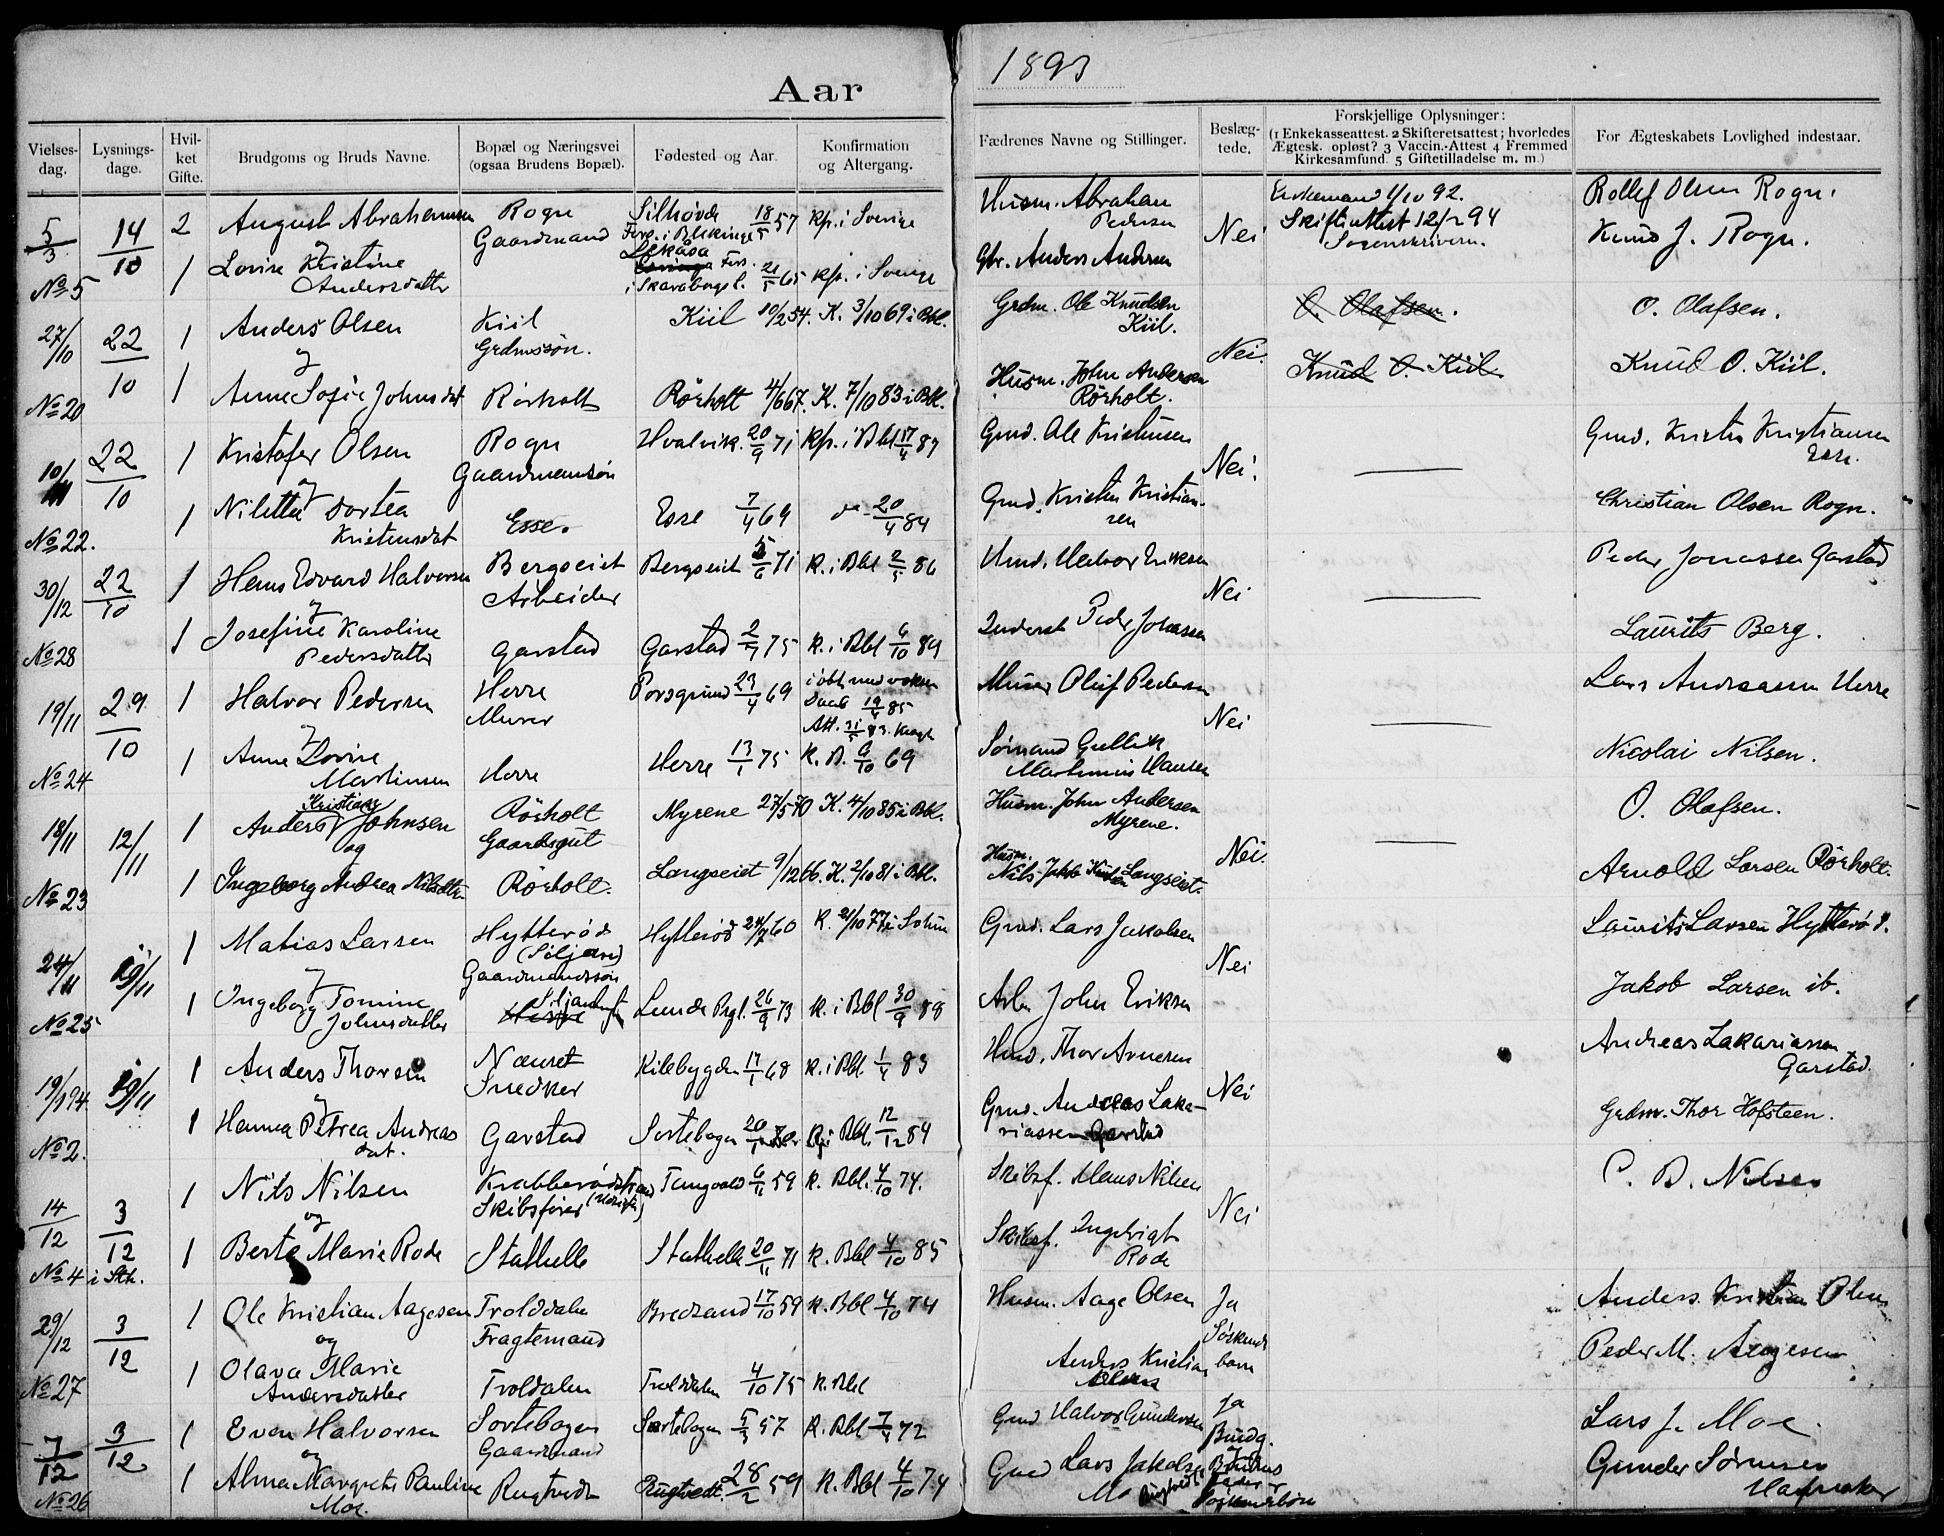 Aar 1893
Vielses-dag. Lysnings-dage. Hvil-ket Gifte. Brudgoms og Bruds Navne. Bopæl og Næringsvei (ogsaa Brudens Bopæl). Fødested og Aar. Konfirmation og Altergang. Fædrenes Navne og Stillinger. Beslæg-tede. Forskjellige Oplysninger: (1 Enkekasseattest. 2 Skifteretsattest; hvorledes Ægtesk. opløst? 3 Vaccin.-Attest 4 Fremmed Kirkesamfund. 5 Giftetilladelse m. m.) For Ægteskabets Lovlighed indestaar.
5/3 14/10 2 August Abrahamsen Rogn Silhövde 18/5 57 kp. i Sverige Husm. Abraham Pedersen Nei Enkemand 1/10 92. Rollef Olsen Rogn.
og Gaardmand Fors. i Blekinge Skifteattest 12/2 94 Knud J. Rogn.
No 5 1 Lovise Kristine Andersdatter i Skaraborgs l. 21/5 65 kp. i Sverige Gbr. Anders Andersen Sorenskriveren.
27/10 22/10 1 Anders Olsen Kiil Kiil 10/2 54. K. 3/10 69 i Bbl. Grdm. Ole Knudsen Kiil. Nei. O. Olafsen. O. Olafsen.
og Grdmssøn. Knud O. Kiil Knud O. Kiil.
No 20 1 Anne Sofie Johnsdat Rörholt Rörholt 4/6 67. K. 7/10 83 i Bbl. Husm. John Andersen Rörholt.
10/11 22/10 1 Kristofer Olsen Rogn Hvalvik 20/9 71 kp. i Bbl 17/4 87 Grmd. Ole Kristensen Nei. Grmd. Kristen Kristiansen Esse.
og Gaardmansøn
No 22. 1 Niletta Dortea Kristensdat Esse. Esse 7/4 69 do - 20/4 84 Grmd. Kristen Kristiansen Christian Olsen Rogn.
30/12 22/10 1 Hans Edvard Halvorsen Bergseiet Bergseiet 5/6 71 K. i Bbl 2/5 86 Hmd. Halvor Eriksen Nei Peder Jonassen Garstad
og Arbeider
No 28 1 Josefine Karoline Pedersdatter Garstad Garstad 2/7 75 K. i Bbl 6/10 89 Inderst Peder Jonassen Laurits Berg.
19/11 29/10 1 Halvor Pedersen Herre Porsgrund 23/4 69 Murer Oluf Pedersen Nei Lars Andreassen Herre
og Murer
No 24 1 Anne Lovise Martinsen Herre Herre 13/1 75 K. B. 6/10 69 Sømand Gullik Martinius Hansen Nicolai Nilsen.
18/11 12/11 1 Anders Kristian Johnsen Rörholt Myrene 27/5 70 K. 4/10 85 i Bbl. Husm. John Andersen Myrene. Nei. O. Olafsen.
og Gaardsgut
No 23 1 Ingeborg Andrea Nilsdtr Rörholt. Langseiet 9/12 66. K. 2/10 81 i Bbl. Husm. Nils Jakob Langseiet. Arnold Larsen Rörholt.
24/11 19/11 1 Matias Larsen Hytterød (Siljan) Hytterød 24/7 60 K. 21/10 77 i Solum Grmd. Lars Jakobsen Nei Laurits Larsen Hytterød.
og Gaardmandssøn
No 25 1 Ingeborg Tomine Johnsdatter Lunde Prgl. 26/9 73 K. i Bbl 30/9 88 Arb. John Eriksen Jakob Larsen ib.
19/1 94 19/11 1 Anders Thorsen Næuret Kilebygden 17/1 68 K. i Bbl. 1/4 83 Hmd. Thor Arnesen Nei Andreas Zakariassen Garstad.
og Snedker
No 2. 1 Hanna Petrea Andreas dat. Garstad Sortebogen 20/1 K. i Bbl. 12/12 84 Grmd. Andreas Zakariassen Garstad Grdm. Thor Hofsteen.
14/12 3/12 1 Nils Nilsen Krabberødstrand Tangvald 6/11 59 K. Bbl. 4/10 74. Skibsf. Hans Nilsen Nei C. B. Nilsen
og Skibsfører
No 4 i Sth. 1 Berte Marie Rode Stathelle Stathelle 20/11 71 K. Bbl 4/10 85 Skibsf. Ingebrigt Rode
29/12 3/12 1 Ole Kristian Aagesen Trolddalen Bredsand 17/10 59 K. Bbl 4/10 74 Husm. Aage Olsen Ja Anders Kristian Olsen
og Fragtemand Søskendebørn
No 27 1 Olava Marie Andersdatter Troldalen Trolddalen 4/10 75 K. Bbl Anders Kristian Olsen Peder M. Aagesen
7/12 3/12 1 Even Halvorsen Sortebogen Sortebogen 5/3 57 K. Bbl 7/4 72 Grmd Halvor Gundersen Ja Lars J. Moe.
og Gaardmand Brudg. og Bruds Fedre er Søskendebørn
No 26 1 Alma Margrete Pauline Moe. Rugtvedt Rugtvedt. 28/2 59 K. Bbl 4/10 74 Grmd Lars Jakobsen Mo Rugtvedt Gunder Sørensen Hafsaker